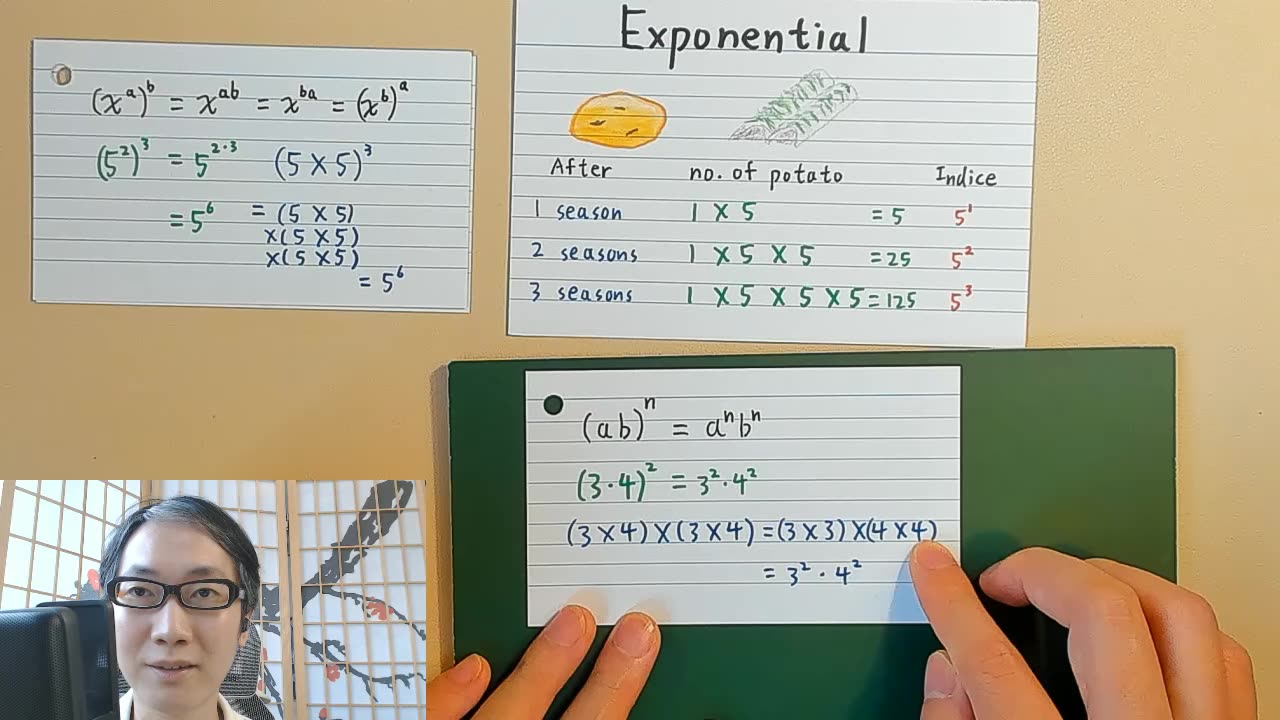 (x^a)^b = x^ab = x^ba = (x^b)^a
(5²)³ = 5^2·3 (5 × 5)³
= 5⁶ = (5 × 5)
×(5 × 5)
×(5 × 5)
= 5⁶
Exponential
After no. of potato Indice
1 season 1 × 5 = 5 5¹
2 seasons 1 × 5 × 5 = 25 5²
3 seasons 1 × 5 × 5 × 5 = 125 5³
(ab)^n = a^n b^n
(3·4)² = 3²·4²
(3×4)×(3×4) = (3×3)×(4×4)
= 3²·4²